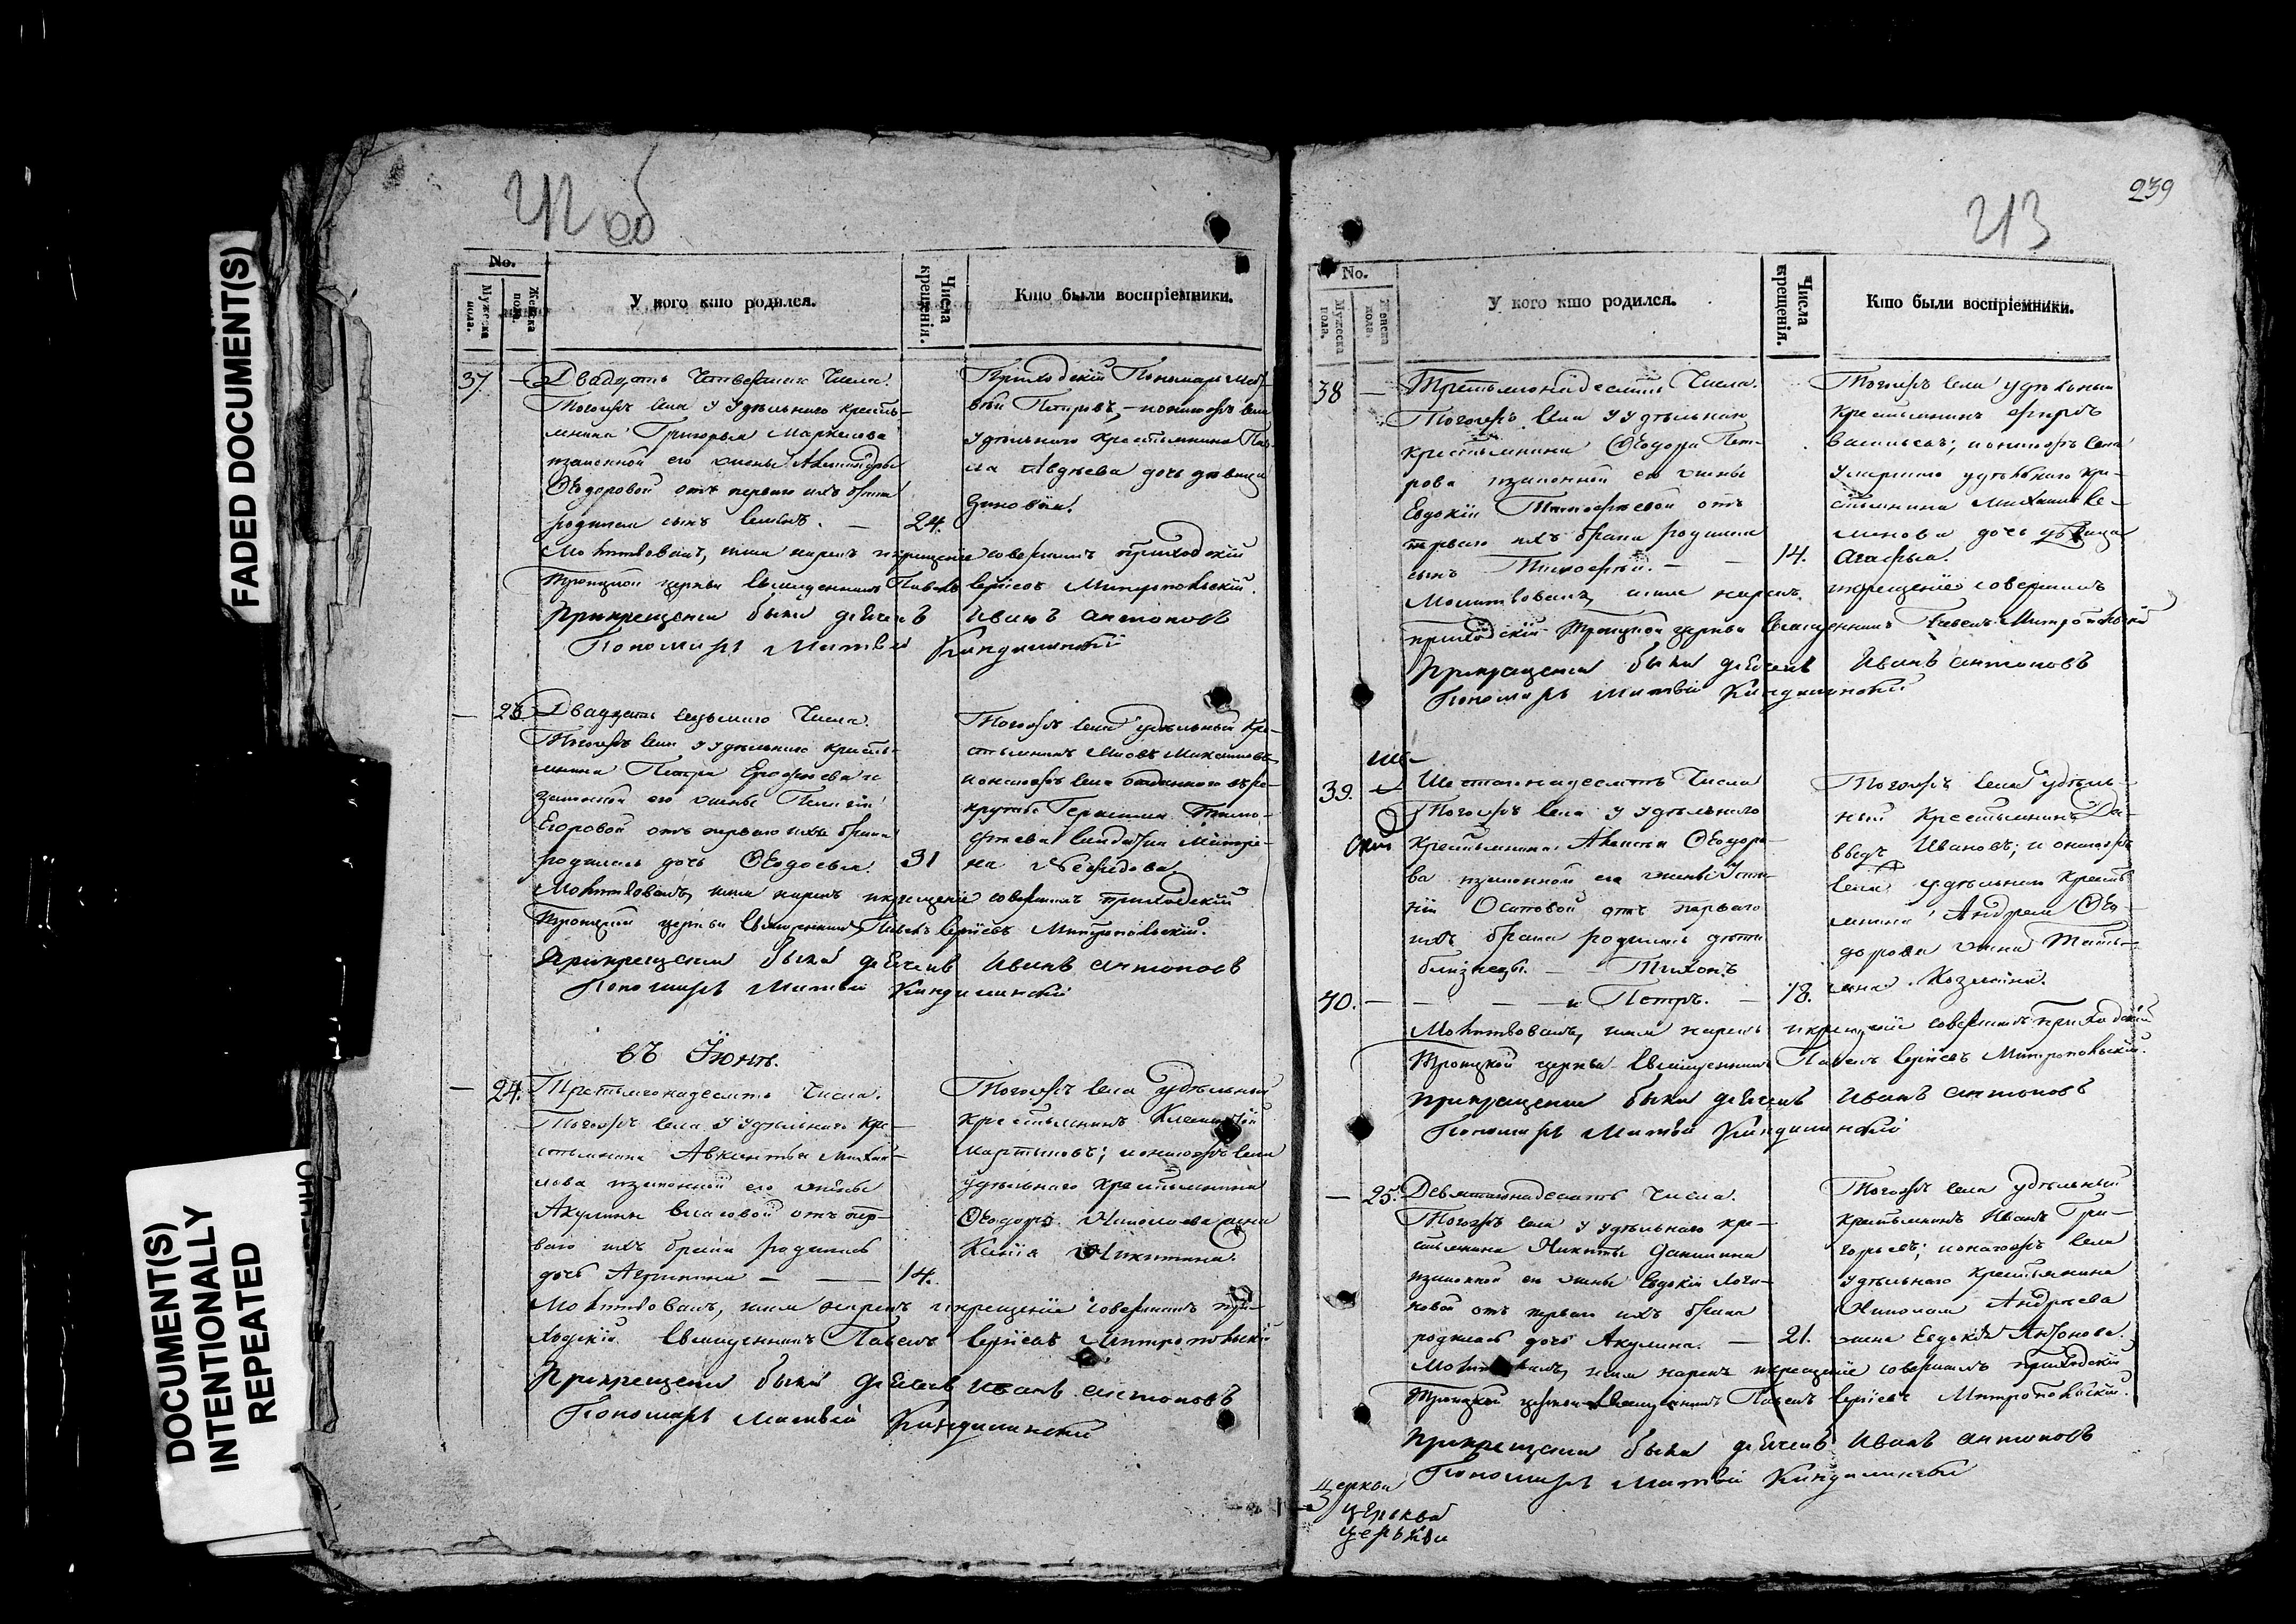 FADED DOCUMENT(S)
DOCUMENT(S)
INTENTIONALLY
REPEATED
212 об
No.
Мужеска пола.
Женска пола.
У кого кто родился.
Числа крещенія.
Кто были воспріемники.
37. — Двадцать четвертаго числа.
Тогожъ села у удѣльнаго кресть-
янина Григорья Маркелова
и законной его жены Александры
Ѳеодоровой отъ перваго ихъ брака
родился сынъ — 24.
Приходскій Пономарь Мат-
вѣй Петровъ, — и тогожъ села
удѣльнаго крестьянина Пав-
ла Авдѣева дочь дѣвица
Зиновія.
Молитвовалъ, имя нарекъ и крещеніе совершилъ приходскій
Троицкой церкви Священникъ Павелъ Сергіевъ Митропольскій.
При крещеніи были дьячекъ Иванъ Антоновъ
Пономарь Матвѣй
— 23. Двадцать седьмаго числа.
Тогожъ села у удѣльнаго кресть-
янина Петра Ерофѣева и
законной его жены Пелагіи
Егоровой отъ перваго ихъ брака
родилась дочь Ѳеодосья. 31
Тогожъ села удѣльный кре-
стьянинъ Іаковъ
и тогожъ села отданнаго въ ре-
круты Герасима Тимо-
фѣева солдатка Матре-
на Нефедова.
Молитвовалъ, имя нарекъ и крещеніе совершилъ приходскій
Троицкой церкви Священникъ Павелъ Сергіевъ Митропольскій.
При крещеніи были дьячекъ Иванъ Антоновъ
Пономарь Матвѣй
въ Іюнѣ.
— 24. Третьягонадесять числа.
Тогожъ села у удѣльнаго кре-
стьянина Авксентья Михай-
лова и законной его жены
Акулины Власовой отъ пер-
ваго ихъ брака родилась
дочь Агрипина — — 14.
Тогожъ села удѣльный
крестьянинъ Климентій
Мартыновъ; и тогожъ села
удѣльнаго крестьянина
Ѳеодора Николаева жена
Ксенія Никитина.
Молитвовалъ, имя нарекъ и крещеніе совершилъ при-
ходскій Священникъ Павелъ Сергіевъ Митропольскій
При крещеніи были дьячекъ Иванъ Антоновъ
Пономарь Матвѣй
239
213
No.
Мужеска пола.
Женска пола.
У кого кто родился.
Числа крещенія.
Кто были воспріемники.
38 — Третьягонадесять числа.
Тогожъ села у удѣльнаго
крестьянина Ѳеодора Пет-
рова и законной его жены
Евдокіи Тимофѣевой отъ
перваго ихъ брака родился
сынъ Тимофей. — — 14.
Тогожъ села удѣльный
крестьянинъ
Васильевъ; и тогожъ села
умершаго удѣльнаго кре-
стьянина Михаила Се-
менова дочь дѣвица
Агафья.
Молитвовалъ, имя нарекъ и крещеніе совершилъ
приходскій Троицкой церкви Священникъ Павелъ Митропольскій
При крещеніи были дьячекъ Иванъ Антоновъ
Пономарь Матвѣй
39. Шестагонадесять числа
Тогожъ села у удѣльнаго
крестьянина Ѳеодоро-
ва и законной его жены Усти-
ніи Осиповой отъ перваго
ихъ брака родились дѣти
близнецы. — — Тихонъ
40. — — — — и Петръ. — 18.
Тогожъ села удѣль-
ный крестьянинъ Да-
выдъ Ивановъ; и тогожъ
села удѣльнаго кресть-
янина Андрея Ѳео-
дорова жена Татья-
на Козмина.
Молитвовалъ, имя нарекъ и крещеніе совершилъ приходскій
Троицкой церкви Священникъ Павелъ Сергіевъ Митропольскій.
При крещеніи были дьячекъ Иванъ Антоновъ
Пономарь Матвѣй
— 25. Девятагонадесять числа.
Тогожъ села у удѣльнаго кре-
стьянина Никиты Данилина
и законной его жены Евдокіи Логи-
новой отъ перваго ихъ брака
родилась дочь Акулина. — 21.
Тогожъ села удѣльный
крестьянинъ Иванъ Гри-
горьевъ; и тогожъ села
удѣльнаго крестьянина
Николая Андреева
жена Евдокія Антонова.
Молитвовалъ, имя нарекъ и крещеніе совершилъ приходскій
Троицкой церкви Священникъ Павелъ Сергіевъ Митропольскій.
При крещеніи были дьячекъ Иванъ Антоновъ
Пономарь Матвѣй
Церкви
церьква
церькви